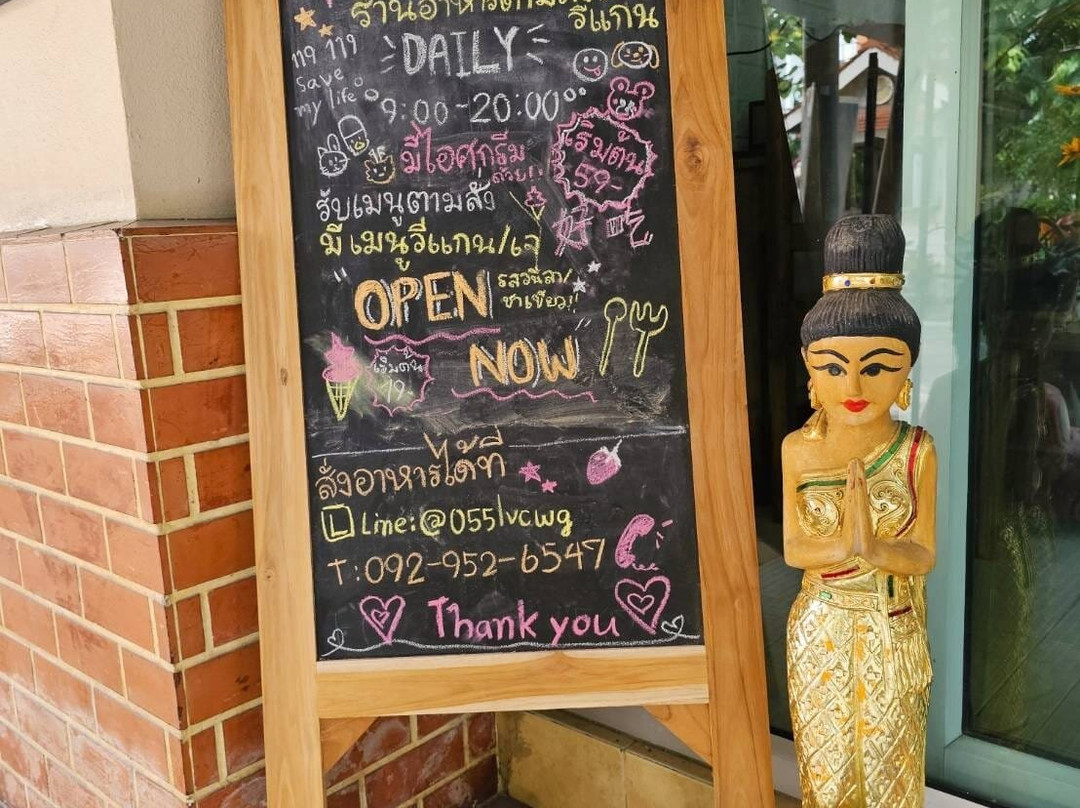 ร้านอาหาร
วีแกน
119 119
Save
my life
DAILY
9:00-20:00
มีไอศกรีม
ด้วย!!
เริ่มต้น
59-
รับเมนูตามสั่ง
มีเมนูวีแกน/เจ
"OPEN
NOW"
รสวนิลา/
ชาเขียว!!
เริ่มต้น
19.
สั่งอาหารได้ที่
L Line:@055lvcwg
T:092-952-6547
Thank you